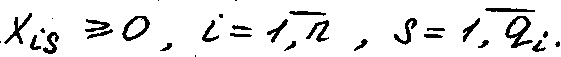 X_{is} ⩾ 0, i = \overline{1, n}, s = \overline{1, q_i}.